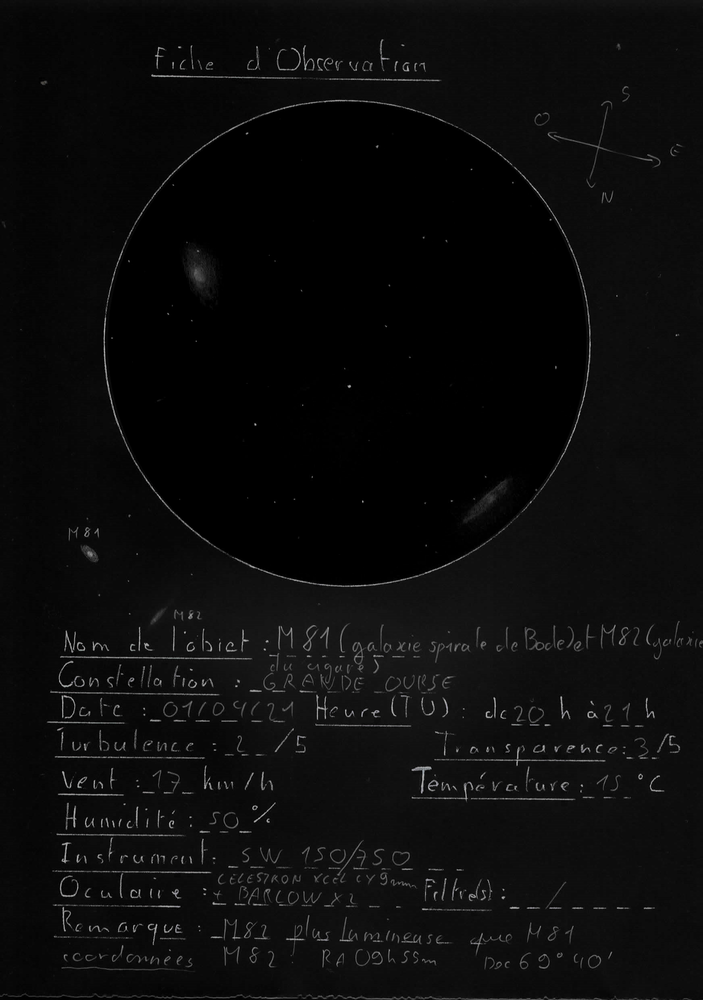 Fiche d'Observation
S
O
E
N
M 81
M 82
Nom de l'objet : M 81 (galaxie spirale de Bode) et M 82 (galaxie
du cigare)
Constellation : GRANDE OURSE
Date : 01/04/21 Heure (TU) : de 20 h à 21 h
Turbulence : 2 /5 Transparence : 3 /5
Vent : 17 km/h Température : 15 °C
Humidité : 50 %
Instrument : SW 150/750
CELESTRON XCEL 9mm
Oculaire : + BARLOW X2 Filtre(s) : /
Remarque : M82 plus lumineuse que M81
coordonnées M82 : RA 09h55m Dec 69° 40'